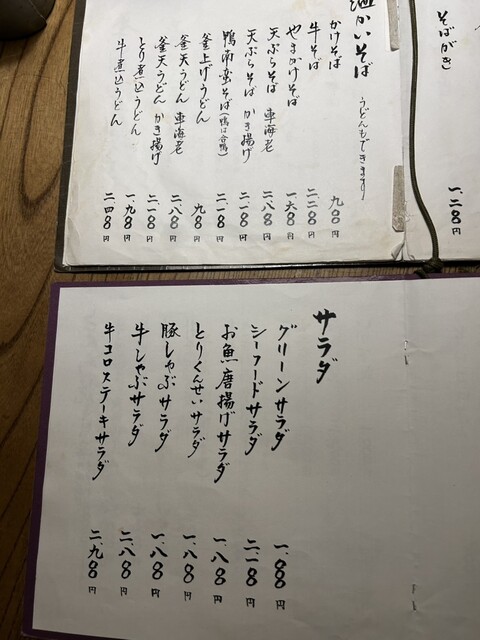 そばがき 一、二〇〇円
温かいそば うどんもできます
かけそば 九〇〇円
牛そば 二、二〇〇円
やまかけそば 一、六〇〇円
天ぷらそば 車海老 二、八〇〇円
天ぷらそば かき揚げ 二、一〇〇円
鴨南蛮そば(鴨は合鴨) 二、一〇〇円
釜上げうどん 九〇〇円
釜天うどん 車海老 二、八〇〇円
釜天うどん かき揚げ 二、一〇〇円
とり煮込うどん 一、九〇〇円
牛煮込うどん 二、四〇〇円
サラダ
グリーンサラダ 一、〇〇〇円
シーフードサラダ 二、一〇〇円
お魚唐揚げサラダ 一、八〇〇円
とりくんせいサラダ 一、八〇〇円
豚しゃぶサラダ 一、八〇〇円
牛しゃぶサラダ 二、八〇〇円
牛コロステーキサラダ 二、九〇〇円